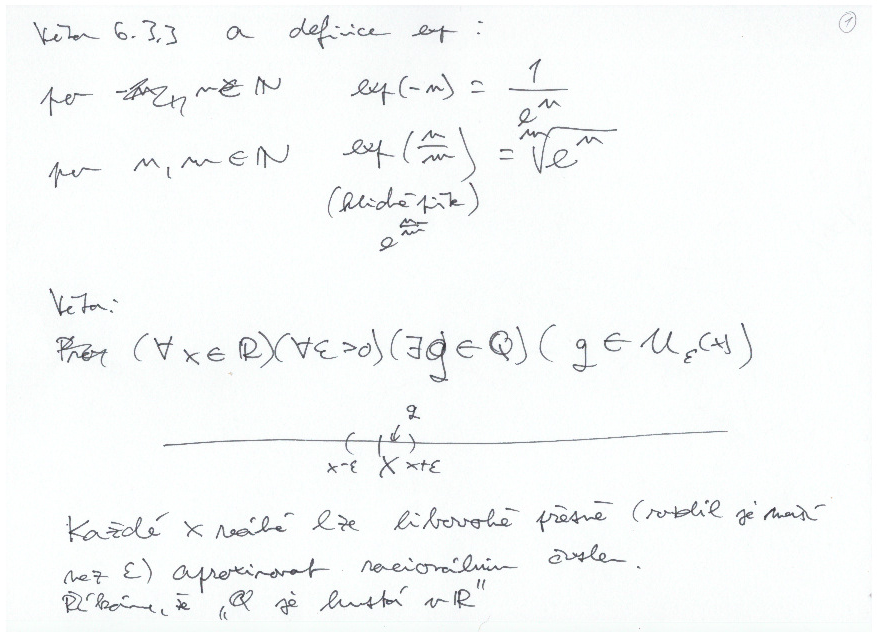 1
Věta 6.3.3 a definice exp :
pro n ∈ ℕ exp(-n) = 1/e^n
pro n, m ∈ ℕ exp(n/m) = ᵐ√(e^n)
(klidně pišt)
e^(n/m)
Věta:
(∀ x ∈ ℝ)(∀ε>0)(∃q ∈ ℚ)( q ∈ U_ε(x))
q
x-ε x x+ε
Každé x reálné lze libovolně přesně (rozdíl je menší
než ε) aproximovat racionálním číslem.
Říkáme, že „ℚ je hustá v ℝ"